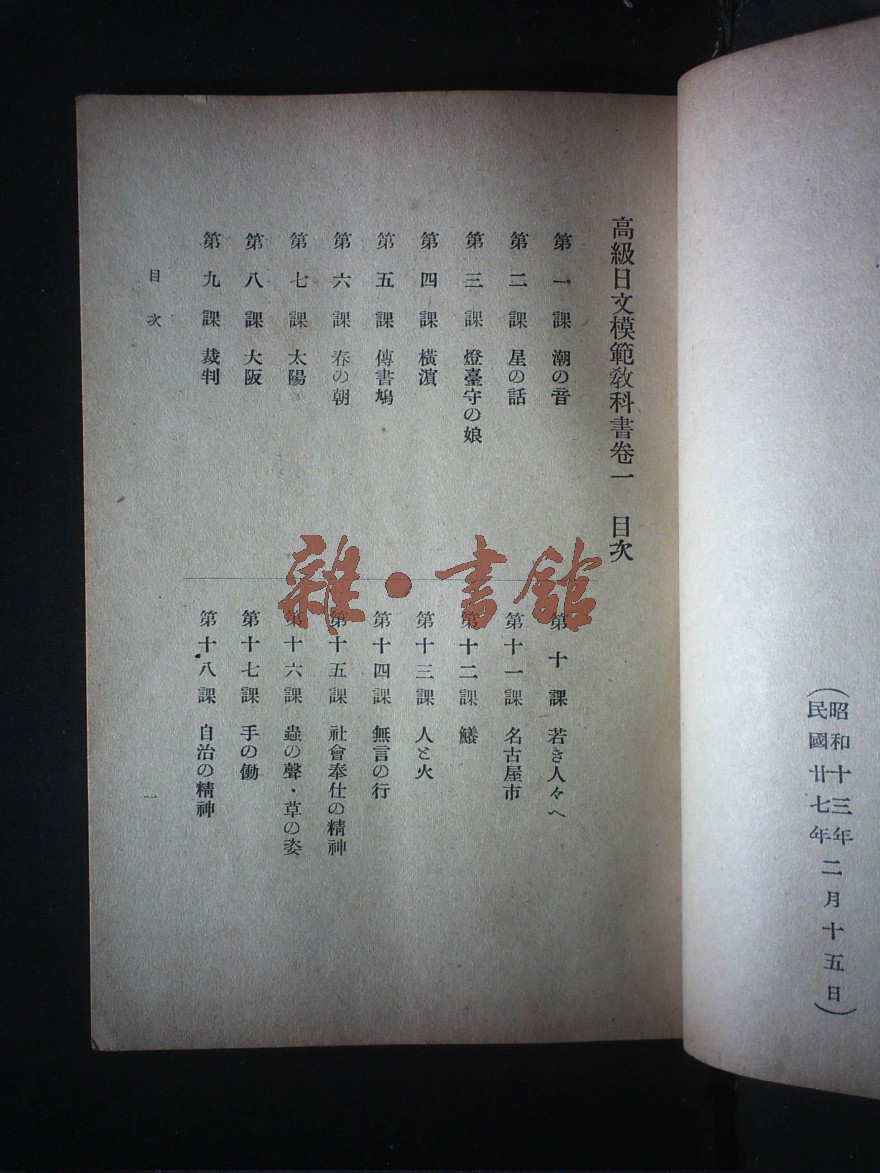 (昭和十三年
民國廿七年二月十五日)
高級日文模範教科書卷一　目次
第一課　潮の音
第二課　星の話
第三課　燈臺守の娘
第四課　橫濱
第五課　傳書鳩
第六課　春の朝
第七課　太陽
第八課　大阪
第九課　裁判
第十課　若き人々へ
第十一課　名古屋市
第十二課　鱶
第十三課　人と火
第十四課　無言の行
第十五課　社會奉仕の精神
第十六課　蟲の聲・草の姿
第十七課　手の働
第十八課　自治の精神
目次
一
雜・書館